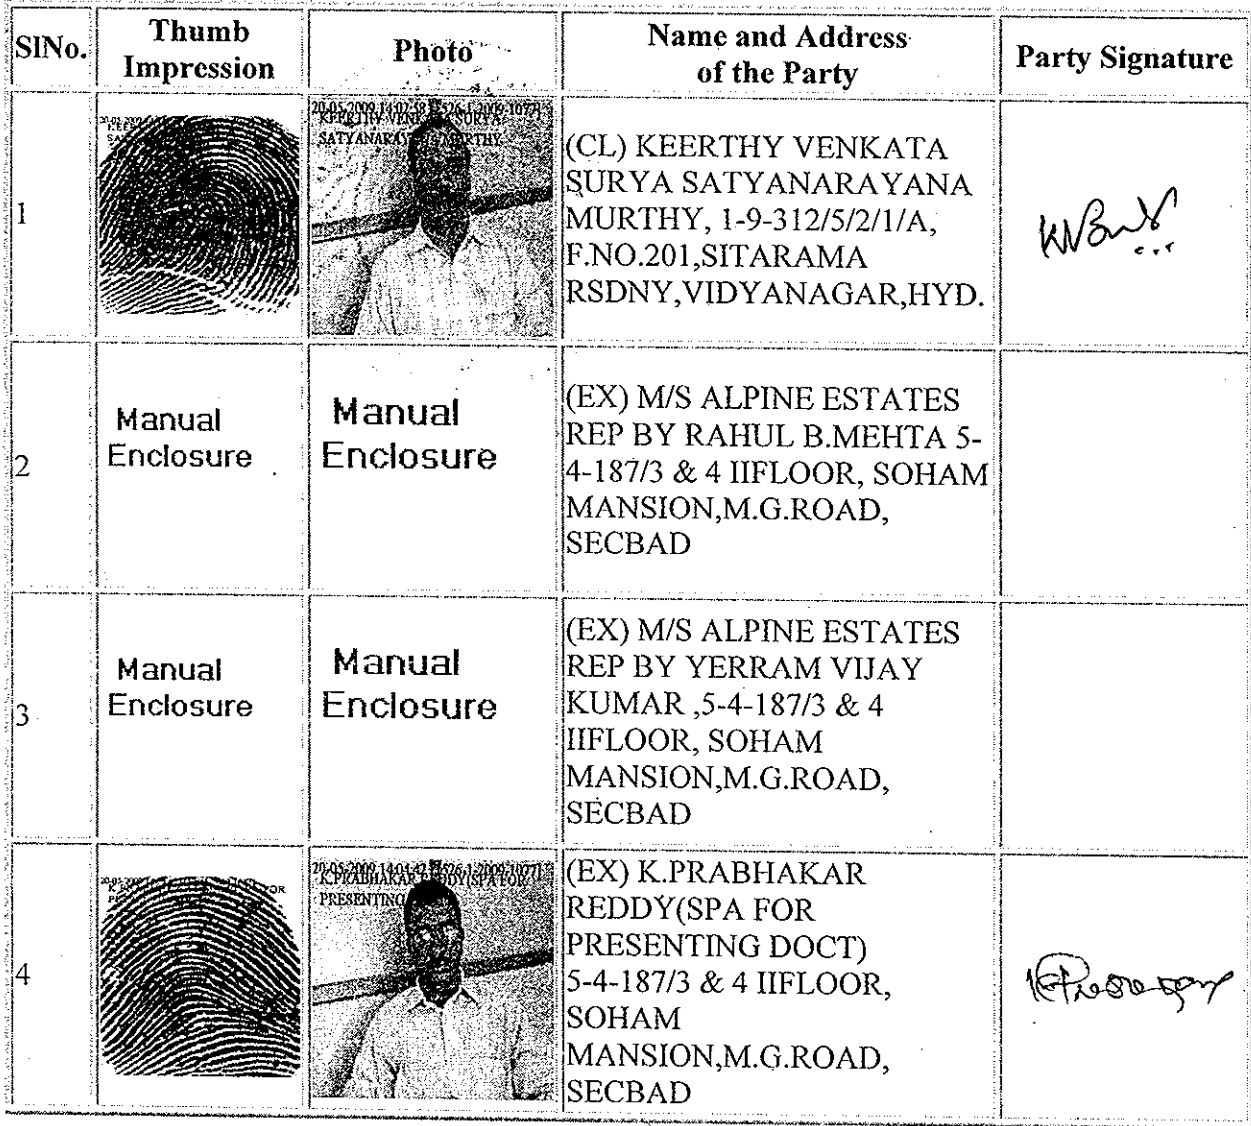 SlNo.
Thumb
Impression
Photo
Name and Address
of the Party
Party Signature
1
20-05-2009,14:02:58
KEERTHY VENKATA SURYA
SATYANARAYANA MURTHY
(CL) KEERTHY VENKATA
SURYA SATYANARAYANA
MURTHY, 1-9-312/5/2/1/A,
F.NO.201,SITARAMA
RSDNY,VIDYANAGAR,HYD.
2
Manual
Enclosure
Manual
Enclosure
(EX) M/S ALPINE ESTATES
REP BY RAHUL B.MEHTA 5-
4-187/3 & 4 IIFLOOR, SOHAM
MANSION,M.G.ROAD,
SECBAD
3
Manual
Enclosure
Manual
Enclosure
(EX) M/S ALPINE ESTATES
REP BY YERRAM VIJAY
KUMAR ,5-4-187/3 & 4
IIFLOOR, SOHAM
MANSION,M.G.ROAD,
SECBAD
4
K.PRABHAKAR REDDY(SPA FOR
PRESENTING
(EX) K.PRABHAKAR
REDDY(SPA FOR
PRESENTING DOCT)
5-4-187/3 & 4 IIFLOOR,
SOHAM
MANSION,M.G.ROAD,
SECBAD